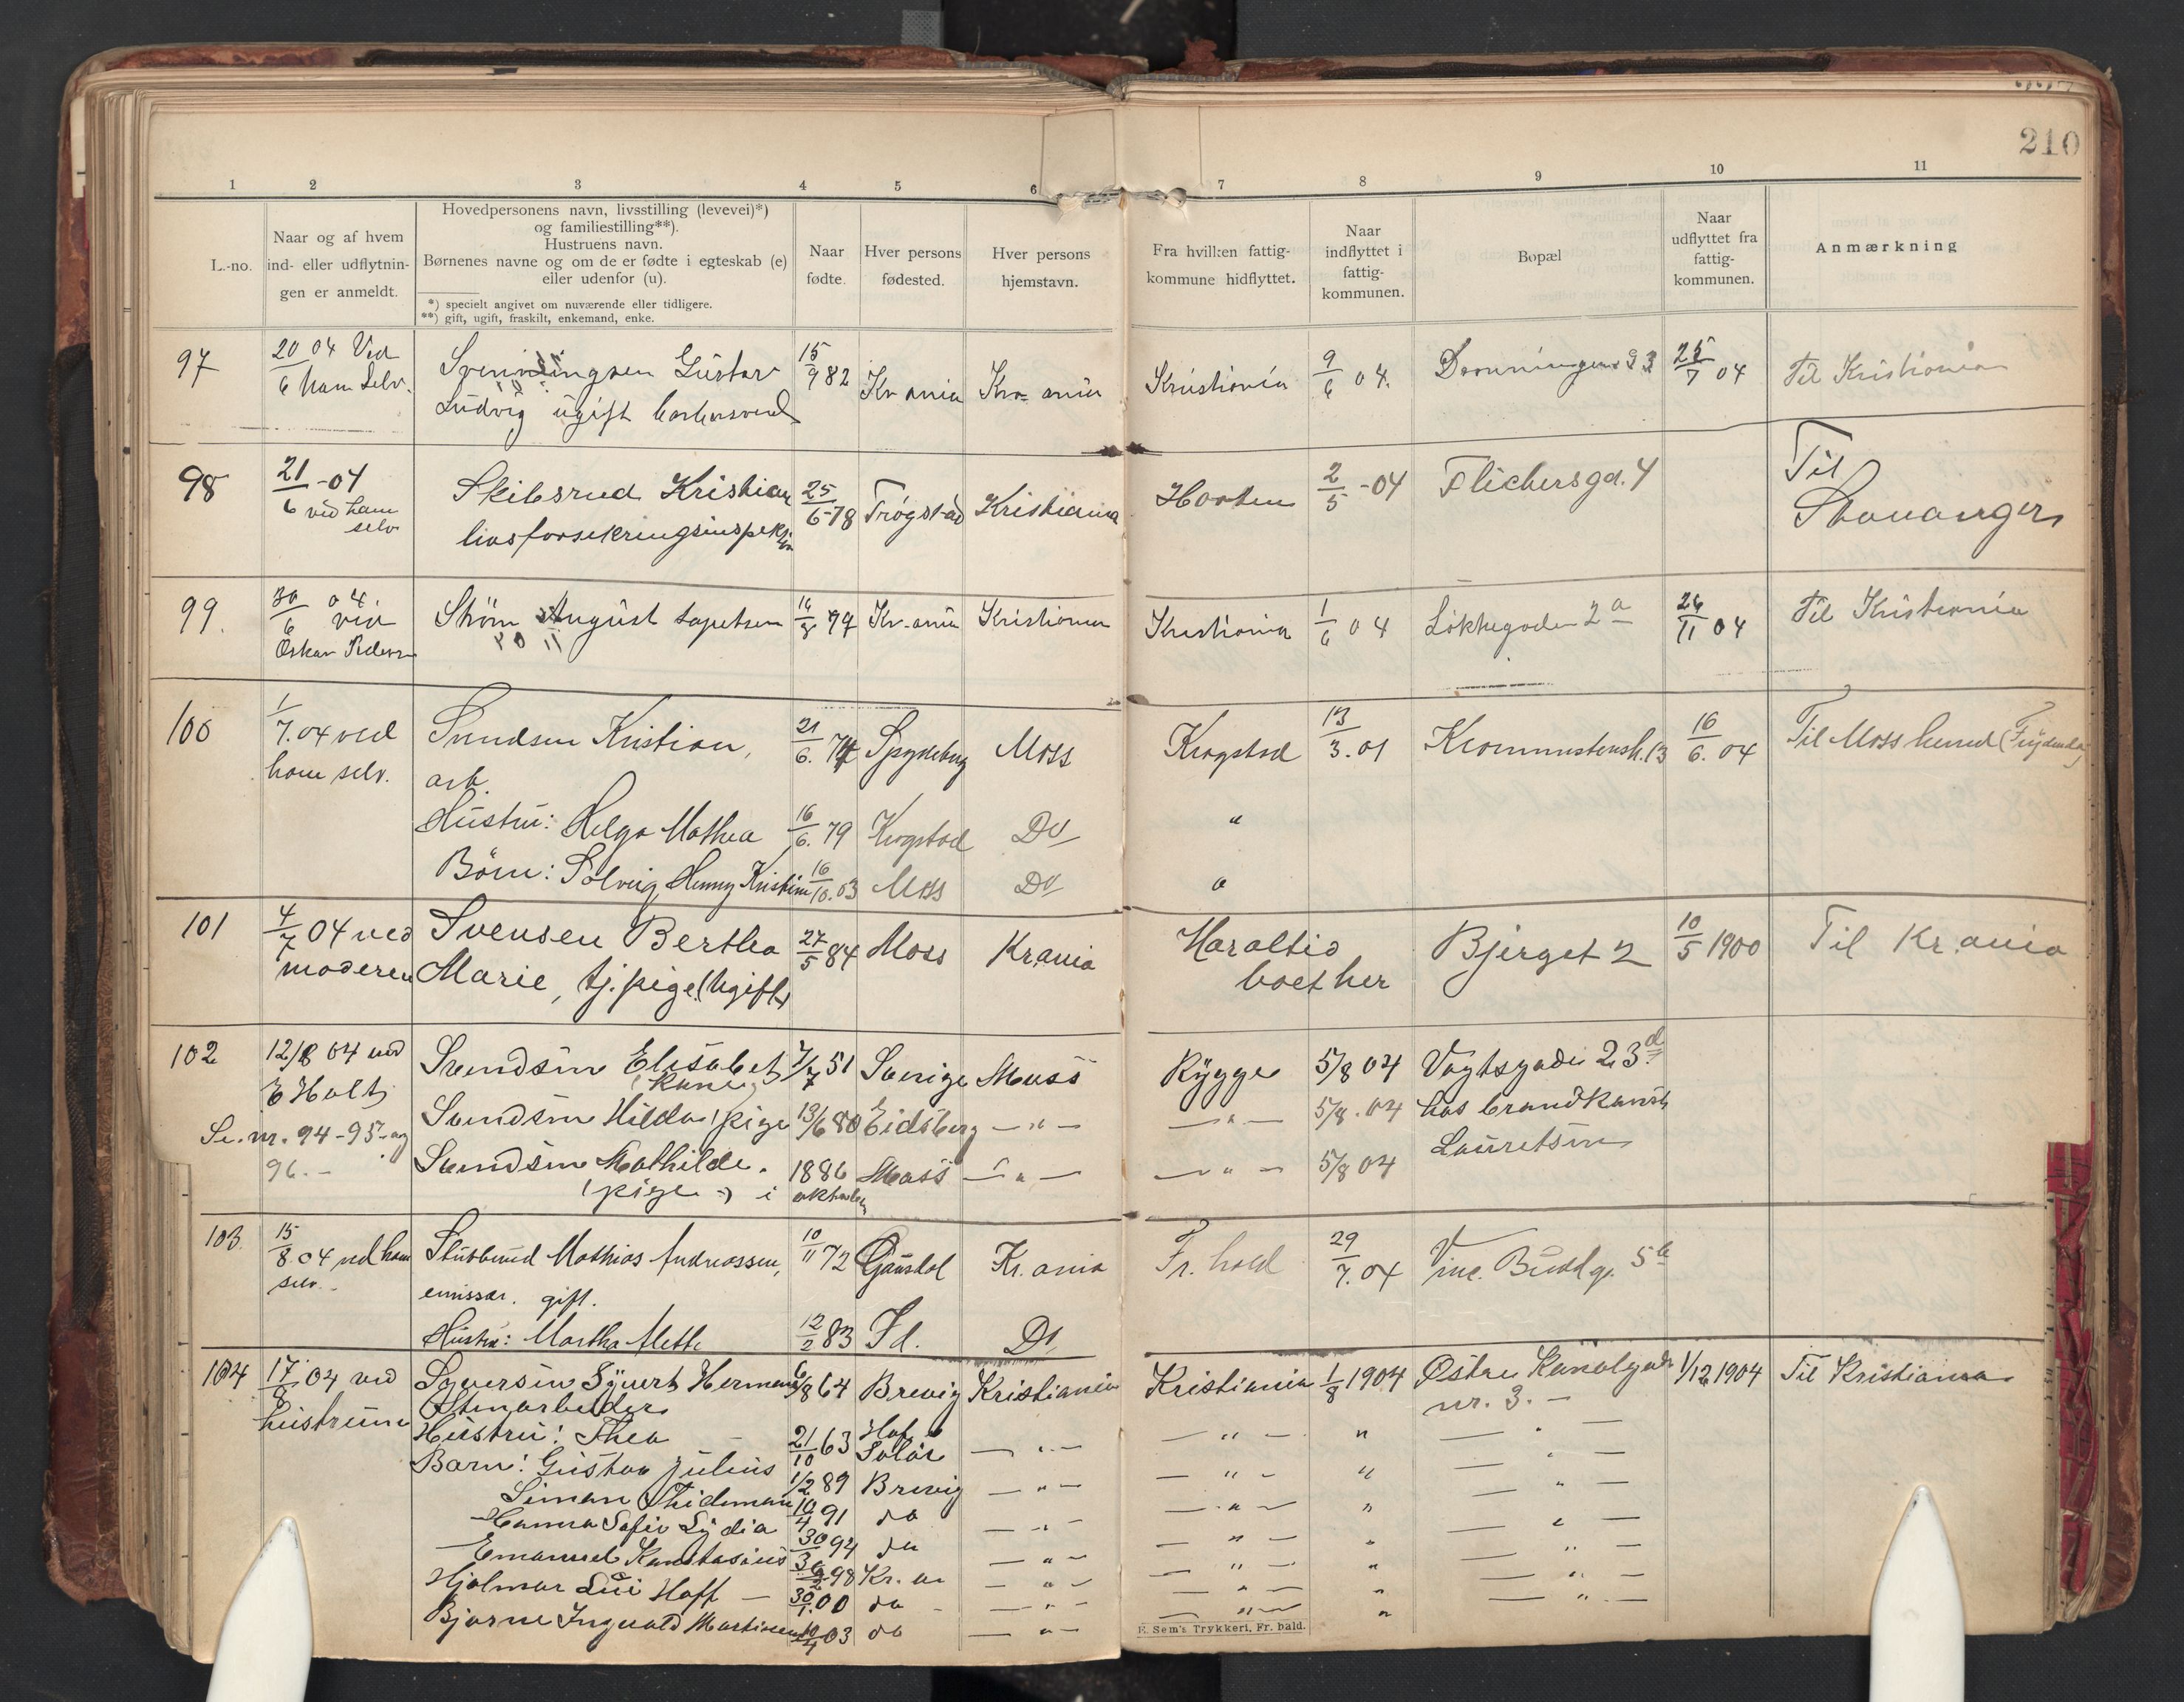 210
1 2 3 4 5 6 7 8 9 10 11
L.-no.
Naar og af hvem
ind- eller udflytnin-
gen er anmeldt.
Hovedpersonens navn, livsstilling (levevei)*)
og familiestilling**).
Hustruens navn.
Børnenes navne og om de er fødte i egteskab (e)
eller udenfor (u).
*) specielt angivet om nuværende eller tidligere.
**) gift, ugift, fraskilt, enkemand, enke.
Naar
fødte.
Hver persons
fødested.
Hver persons
hjemstavn.
Fra hvilken fattig-
kommune hidflyttet.
Naar
indflyttet i
fattig-
kommunen.
Bopæl
Naar
udflyttet fra
fattig-
kommunen.
Anmærkning
97 20/6 04 Ved Svenningsen Gustav 15/9 82 Kr ania Kr ania Kristiania 9/6 04. Dronningens g 3 25/7 04 Til Kristiania
ham Selv. Ludvig ugift barbersvend
98 21/6 -04 Skibsrud Kristian 25/6-78 Trøgstad Kristiania Horten 2/5 -04 Flichersgd. 4 Til
ved ham livsforsikringsinspektør Stavanger
selv
99. 30/6 04. ved Strøm August tapetsen 16/8 79 Kr. ania Kristiania Kristiania 1/6 04 Løkkegaden 2a 26/11 04 Til Kristiania
Oskar Pedersen
100 1/7.04 ved Svendsen Kristian, 21/6. 74 Spydeberg Moss Krogstad 13/3.01 16/6.04 Til Moss herred
ham selv. arb.
Hustru: Helga Mathea 16/6. 79 Krogstad Do "
Børn: Solveig Henny Kristine 16/10.03 Moss Do "
101 4/7 04 ved Svensen Bertha 27/5 84 Moss Kr.ania Har altid Bjerget 2 10/5 1900 Til Kr.ania
moderen Marie, tj.pige (ugift) boet her
102 12/8 04 ved Svendsen Elisabet 7/7 51 Sverige Moss Rygge 5/8 04 Vogtsgade 23d
E Holt (kone)
Svendsen Hilda (pige 13/6 80 Eidsberg — " — — " — 5/8.04 hos brandkonst.
Se nr. 94-95 og
96.- Svendsen Mathilde. 1886 Moss — " — — " — 5/8 04 Lauretsen
(pige) i oktober
103. 15/8.04 ved ham Stubberud Mathias Andreassen, 10/11 72 Gausdal Kr. ania Fr. hald 29/7.04 Vinc. Buddg. 5b
selv. emissær. gift.
Hustru: Martha Mette 12/2 83 Id. Do
104 17/8 04 ved Syversen Syvert Herman 6/8 64 Brevig Kristiania Kristiania 1/8 1904 Østre Kanalgade 1/12 1904 Til Kristiania
hustruen Stenarbeider nr. 3. -
Hustru: Thea 21/10 63 Hof Solør — " — — " — " — " —
Barn: Gustav Julius 1/2 89 Brevig — " — — " — " — " —
Simon Thideman 10/4 91 do — " — — " — " — " —
Hanna Sofie Lydia 30 94 do — " — — " — " — " —
Emanuel Konstasius 98 Kr. a — " — — " — " — " —
Hjalmar Lüi Hoff — 30/1.00 do — " — — " — " — " —
Bjarne Ingvald Martinsen 10/4 03 do — " — — " — "
E. Sem's Trykkeri, Fr. hald.